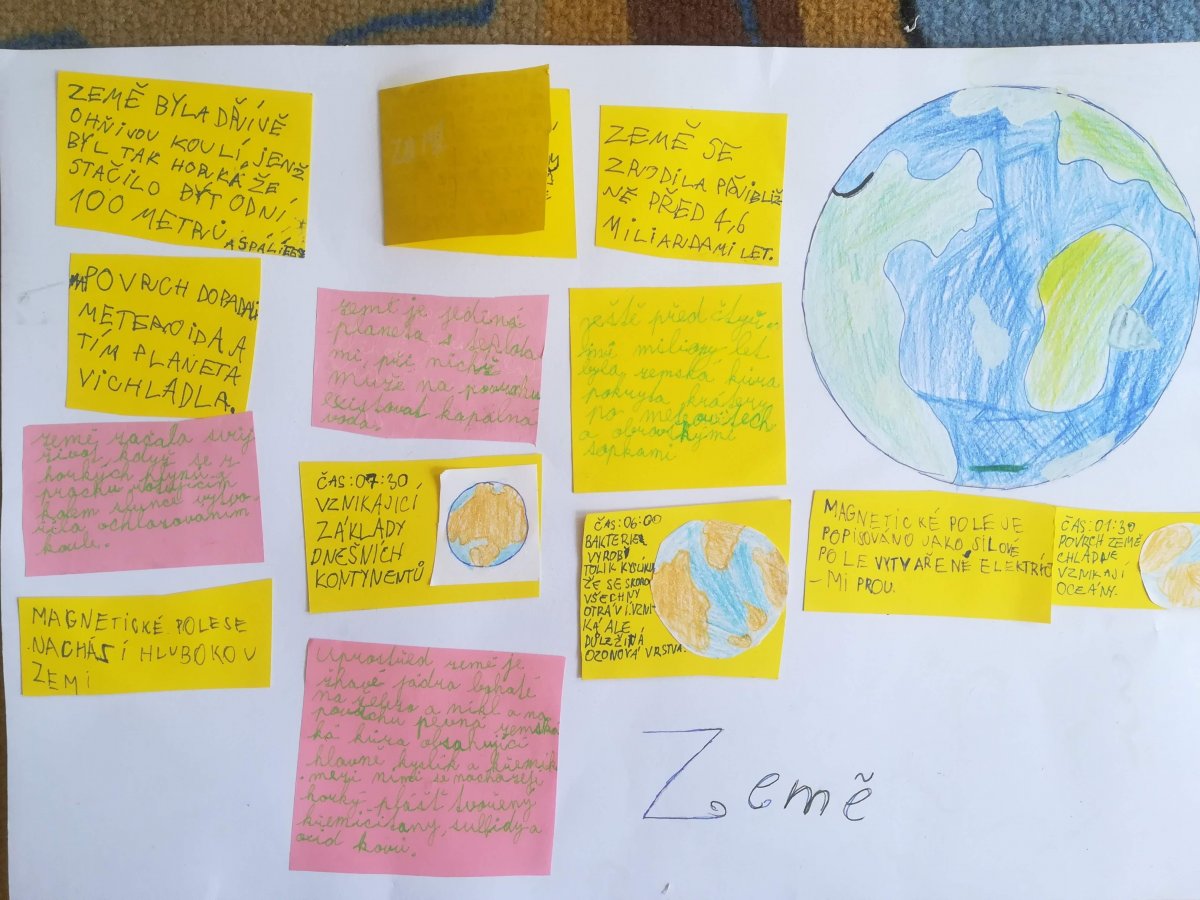 ZEMĚ BYLA DŘÍVĚ
OHŇIVOU KOULÍ JENŽ
BÝL TAK HORKÁ ŽE
STAČILO BÝT ODNÍ
100 METRŮ
ZEMĚ SE
ZRODILA PŘIBLIŽ
NĚ PŘED 4,6
MILIARDAMI LET.
POVRCH DOPADALI
METEROIDA A
TÍM PLANETA
VICHLADLA.
země je jediná
planeta s teplota
mi, při nichž
může na povrchu
existovat kapalná
voda.
ještě před čtyř-
mi miliony let
byla zemská kůra
pokryta krátery
po meteoritech
a obrovskými
sopkami
země začala svůj
život, když se z
horkých plynů a
prachu rotujícím
kolem slunce vytvo-
řila ochlazováním
koule.
ČAS:07:30
VZNIKAJICÍ
ZÁKLADY
DNEŠNÍCH
KONTYNENTŮ
ČAS:06:00
BAKTERIE
VYROBÍ
TOLIK KYSLÍKU
ŽE SE SKORO
VŠECHNY
OTRÁVÍ.VZNI-
KÁ ALE
DŮLEŽITÁ
OZONOVÁ VRSTVA.
MAGNETICKÉ POLE JE
POPISOVÁNO JAKO SILOVÉ
POLE VYTVAŘENÉ ELEKTRIC
-MI PROU.
ČAS:01:30
POVRCH ZEMĚ
CHLADNE
VZNIKAJÍ
OCEÁNY.
MAGNETICKÉ POLE SE
NACHÁSÍ HLUBOKO V
ZEMI
Uprostřed země je
žhavé jádro bohaté
na železo a nikl a na
povrchu pevná zems
ká kůra obsahující
hlavně kyslík a křemík
mezi nimi se nacházejí
horký plášť tvořený
křemičitany, sulfidy a
oxid kovů.
Země